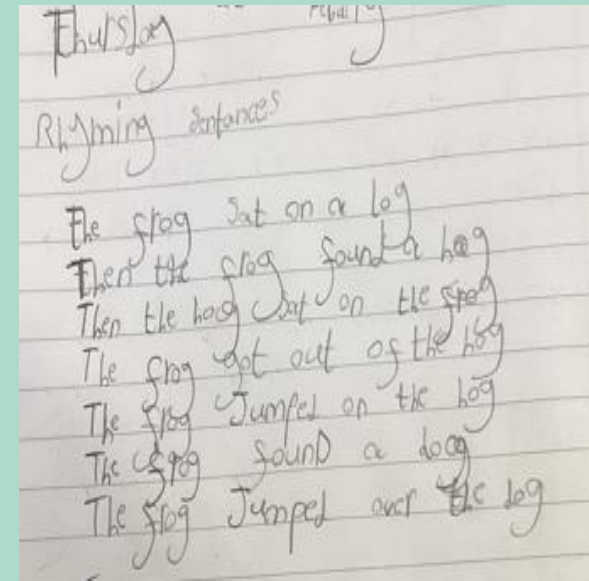 Thursday
Rhyming Sentances
The frog sat on a log
Then the frog found a hog
Then the hog sat on the frog
The frog got out of the hog
The frog Jumped on the hog
The frog found a doog
The frog Jumped over the dog